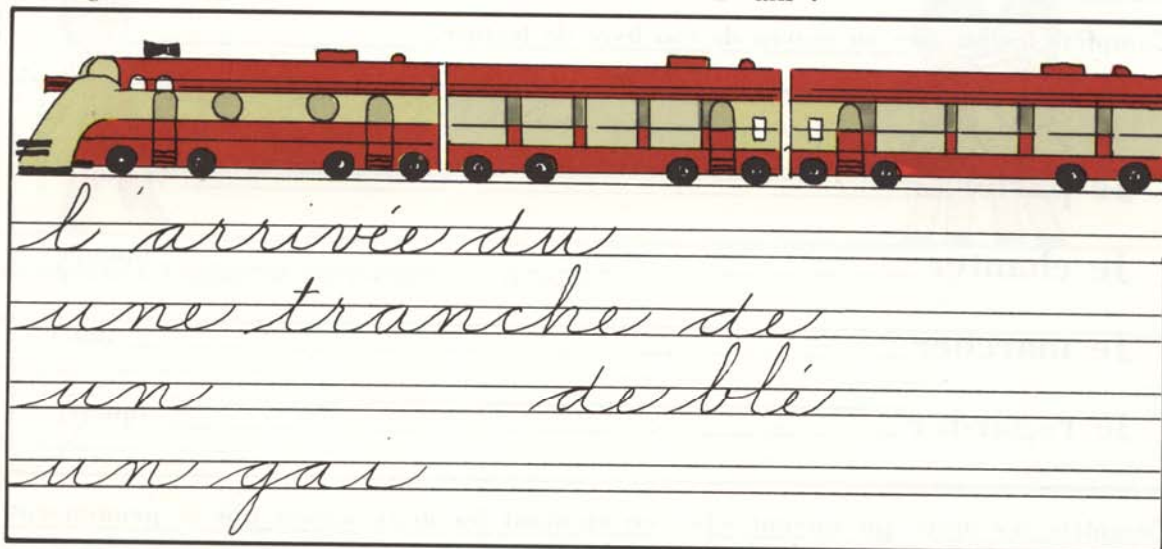 l'arrivée du
une tranche de
un de blé
un gai